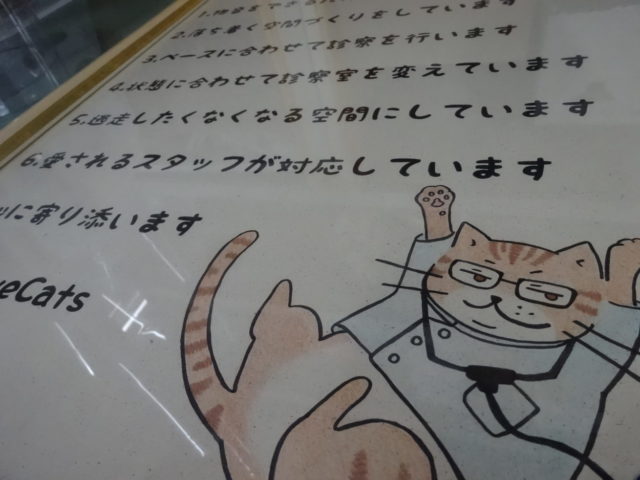 2.落ち着く空間づくりをしています
3.ペースに合わせて診察を行います
4.状態に合わせて診察室を変えています
5.逃走したくなくなる空間にしています
6.愛されるスタッフが対応しています
に寄り添います
eCats